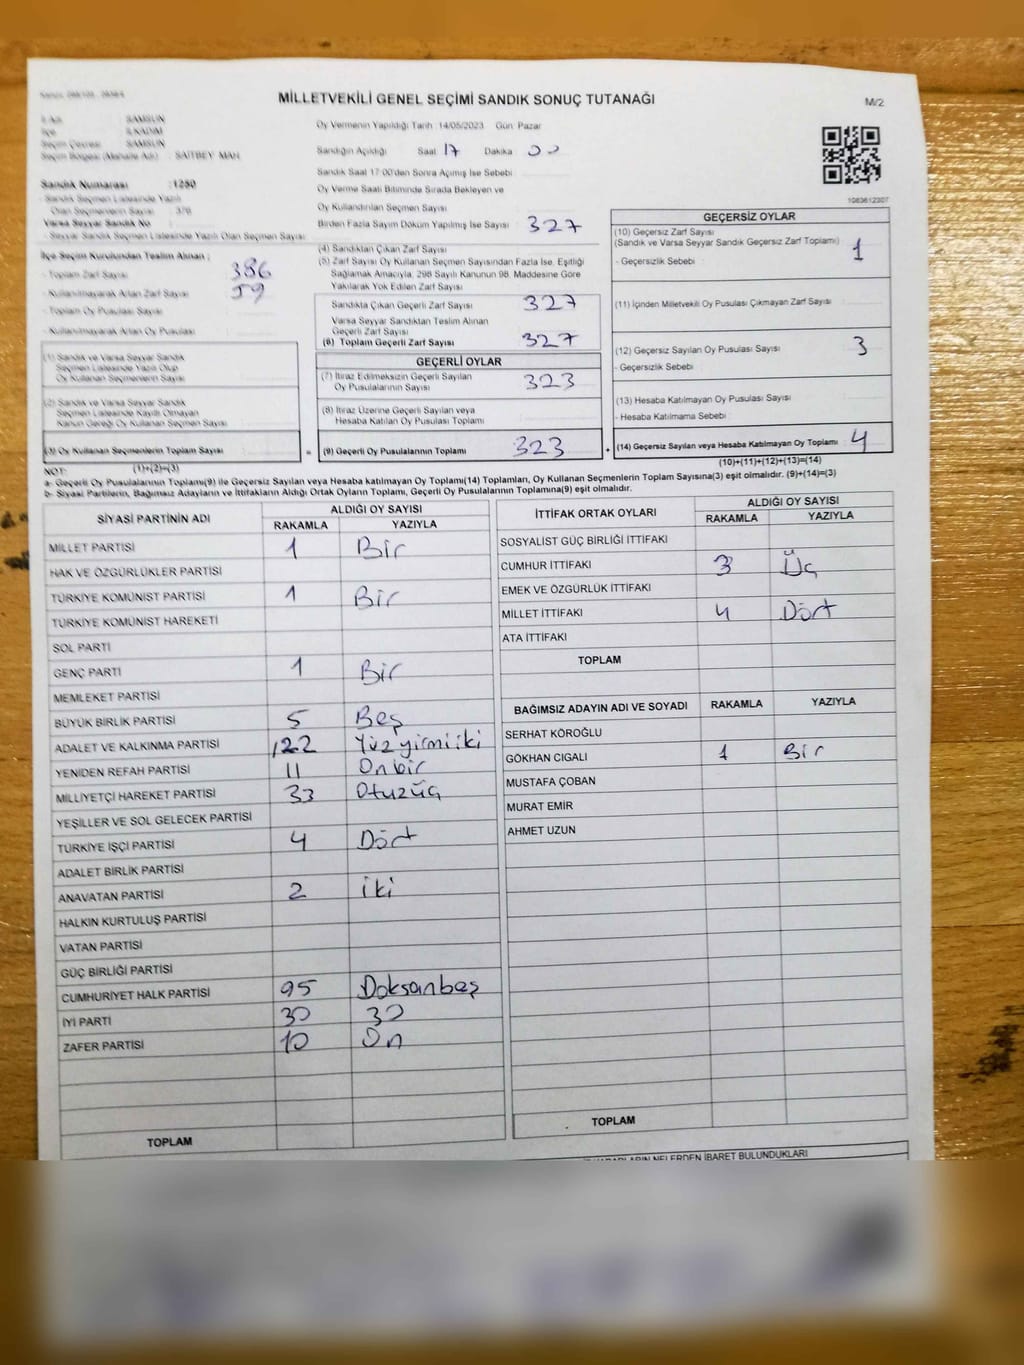 MİLLETVEKİLİ GENEL SEÇİMİ SANDIK SONUÇ TUTANAĞI
M/2
İl Adı SAMSUN
İlçe İLKADIM
Seçim Çevresi SAMSUN
Seçim Bölgesi (Mahalle Adı) : SAİTBEY MAH.
Oy Vermenin Yapıldığı Tarih :14/05/2023 Gün: Pazar
Sandığın Açıldığı Saat 17 Dakika 00
Sandık Saat 17:00'den Sonra Açımış İse Sebebi
Oy Verme Saati Bitiminde Sırada Bekleyen ve
Oy Kullandırılan Seçmen Sayısı
Birden Fazla Sayım Döküm Yapılmış İse Sayısı 327
1083612307
Sandık Numarası :1250
Sandık Seçmen Listesinde Yazılı
Olan Seçmenlerin Sayısı : 376
Varsa Seyyar Sandık No
- Seyyar Sandık Seçmen Listesinde Yazılı Olan Seçmen Sayısı
İlçe Seçim Kurulundan Teslim Alınan ;
- Toplam Zarf Sayısı 386
- Kullanılmayarak Artan Zarf Sayısı 59
- Toplam Oy Pusulası Sayısı
- Kullanılmayarak Artan Oy Pusulası
(1) Sandık ve Varsa Seyyar Sandık
Seçmen Listesinde Yazılı Olup
Oy Kullanan Seçmenlerin Sayısı
(2) Sandık ve Varsa Seyyar Sandık
Seçmen Listesinde Kayıtlı Olmayan
Kanun Gereği Oy Kullanan Seçmen Sayısı
(3) Oy Kullanan Seçmenlerin Toplam Sayısı
(1)+(2)=(3)
(4) Sandıktan Çıkan Zarf Sayısı
(5) Zarf Sayısı Oy Kullanan Seçmen Sayısından Fazla İse, Eşitliği
Sağlamak Amacıyla, 298 Sayılı Kanunun 98. Maddesine Göre
Yakılarak Yok Edilen Zarf Sayısı
Sandıkta Çıkan Geçerli Zarf Sayısı 327
Varsa Seyyar Sandıktan Teslim Alınan
Geçerli Zarf Sayısı
(6) Toplam Geçerli Zarf Sayısı 327
GEÇERLİ OYLAR
(7) İtiraz Edilmeksizin Geçerli Sayılan
Oy Pusulalarının Sayısı 323
(8) İtiraz Üzerine Geçerli Sayılan veya
Hesaba Katılan Oy Pusulaları Toplamı
= (9) Geçerli Oy Pusulalarının Toplamı 323 +
GEÇERSİZ OYLAR
(10) Geçersiz Zarf Sayısı
(Sandık ve Varsa Seyyar Sandık Geçersiz Zarf Toplamı) 1
- Geçersizlik Sebebi
(11) İçinden Milletvekili Oy Pusulası Çıkmayan Zarf Sayısı
(12) Geçersiz Sayılan Oy Pusulası Sayısı 3
- Geçersizlik Sebebi
(13) Hesaba Katılmayan Oy Pusulası Sayısı
- Hesaba Katılmama Sebebi
(14) Geçersiz Sayılan veya Hesaba Katılmayan Oy Toplamı 4
(10)+(11)+(12)+(13)=(14)
NOT:
a- Geçerli Oy Pusulalarının Toplamı(9) ile Geçersiz Sayılan veya Hesaba katılmayan Oy Toplamı(14) Toplamları, Oy Kullanan Seçmenlerin Toplam Sayısına(3) eşit olmalıdır. (9)+(14)=(3)
b- Siyasi Partilerin, Bağımsız Adayların ve İttifakların Aldığı Ortak Oyların Toplamı, Geçerli Oy Pusulalarının Toplamına(9) eşit olmalıdır.
SİYASİ PARTİNİN ADI ALDIĞI OY SAYISI
RAKAMLA YAZIYLA
MİLLET PARTİSİ 1 Bir
HAK VE ÖZGÜRLÜKLER PARTİSİ
TÜRKİYE KOMÜNİST PARTİSİ 1 Bir
TÜRKİYE KOMÜNİST HAREKETİ
SOL PARTİ
GENÇ PARTİ 1 Bir
MEMLEKET PARTİSİ
BÜYÜK BİRLİK PARTİSİ 5 Beş
ADALET VE KALKINMA PARTİSİ 122 Yüzyirmiiki
YENİDEN REFAH PARTİSİ 11 Onbir
MİLLİYETÇİ HAREKET PARTİSİ 33 Otuzüç
YEŞİLLER VE SOL GELECEK PARTİSİ
TÜRKİYE İŞÇİ PARTİSİ 4 Dört
ADALET BİRLİK PARTİSİ
ANAVATAN PARTİSİ 2 iki
HALKIN KURTULUŞ PARTİSİ
VATAN PARTİSİ
GÜÇ BİRLİĞİ PARTİSİ
CUMHURİYET HALK PARTİSİ 95 Doksanbeş
İYİ PARTİ 30 30
ZAFER PARTİSİ 10 On
TOPLAM
İTTİFAK ORTAK OYLARI ALDIĞI OY SAYISI
RAKAMLA YAZIYLA
SOSYALİST GÜÇ BİRLİĞİ İTTİFAKI
CUMHUR İTTİFAKI 3 Üç
EMEK VE ÖZGÜRLÜK İTTİFAKI
MİLLET İTTİFAKI 4 Dört
ATA İTTİFAKI
TOPLAM
BAĞIMSIZ ADAYIN ADI VE SOYADI RAKAMLA YAZIYLA
SERHAT KÖROĞLU
GÖKHAN CIGALI 1 Bir
MUSTAFA ÇOBAN
MURAT EMİR
AHMET UZUN
TOPLAM
NELERDEN İBARET BULUNDUKLARI